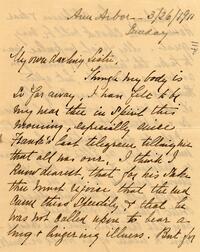 Ann Arbor - 3/26/1911
Sunday
My own darling
Though my body is
so far away, I have felt to be
very near thee in spirit this
morning, especially since
Frank's last telegram telling me
that all was over. I think I
know dearest, that for his sake
thee must rejoice that the end
came thus speedily, & that he
was not called upon to bear a
long & lingering illness. But for